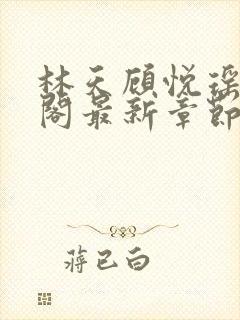 林天顾悦瑶
阁最新章节
蒋已白